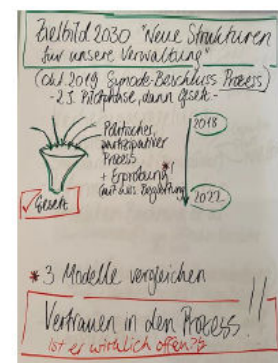 Zielbild 2030 "Neue Strukturen
für unsere Verwaltung"
(Okt. 2019 Synode-Beschluss Prozess)
- 2 J. Pilotphase, dann Gesetz -
Politischer,
partizipativer
Prozess
+ Erprobung *
(mit wiss. Begleitung)
2018
2022
Gesetz
* 3 Modelle vergleichen
Vertrauen in den Prozess!!
Ist er wirklich offen?